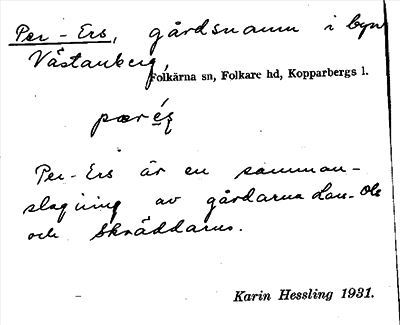 Per-Ers, gårdsnamn i byn
Västanberg,
Folkärna sn, Folkare hd, Kopparbergs l.
Per-Ers är en samman-
slagning av gårdarna Lan-Ols
och Skräddarns.
Karin Hessling 1931.